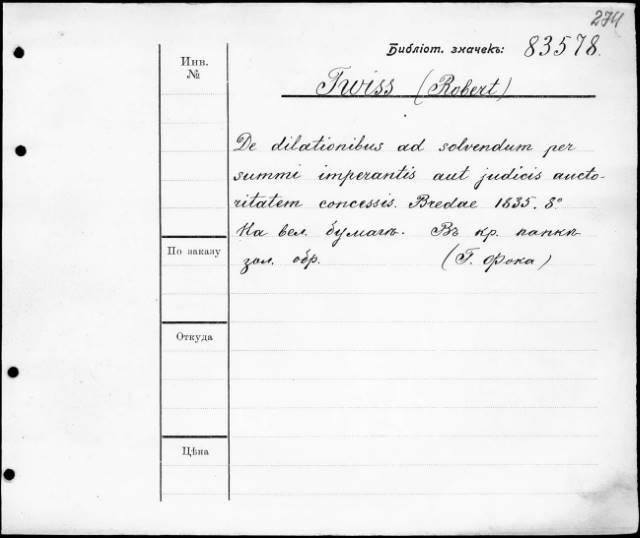 274
Библіот. значекъ: 83578.
Инв. №
Twiss (Robert)
De dilationibus ad solvendum per
summi imperantis aut judicis aucto-
ritatem concessis. Bredae 1835. 8º
На вел. бумагѣ. Въ кр. папкѣ
зол. обр. (Г. Фока)
По заказу
Откуда
Цѣна